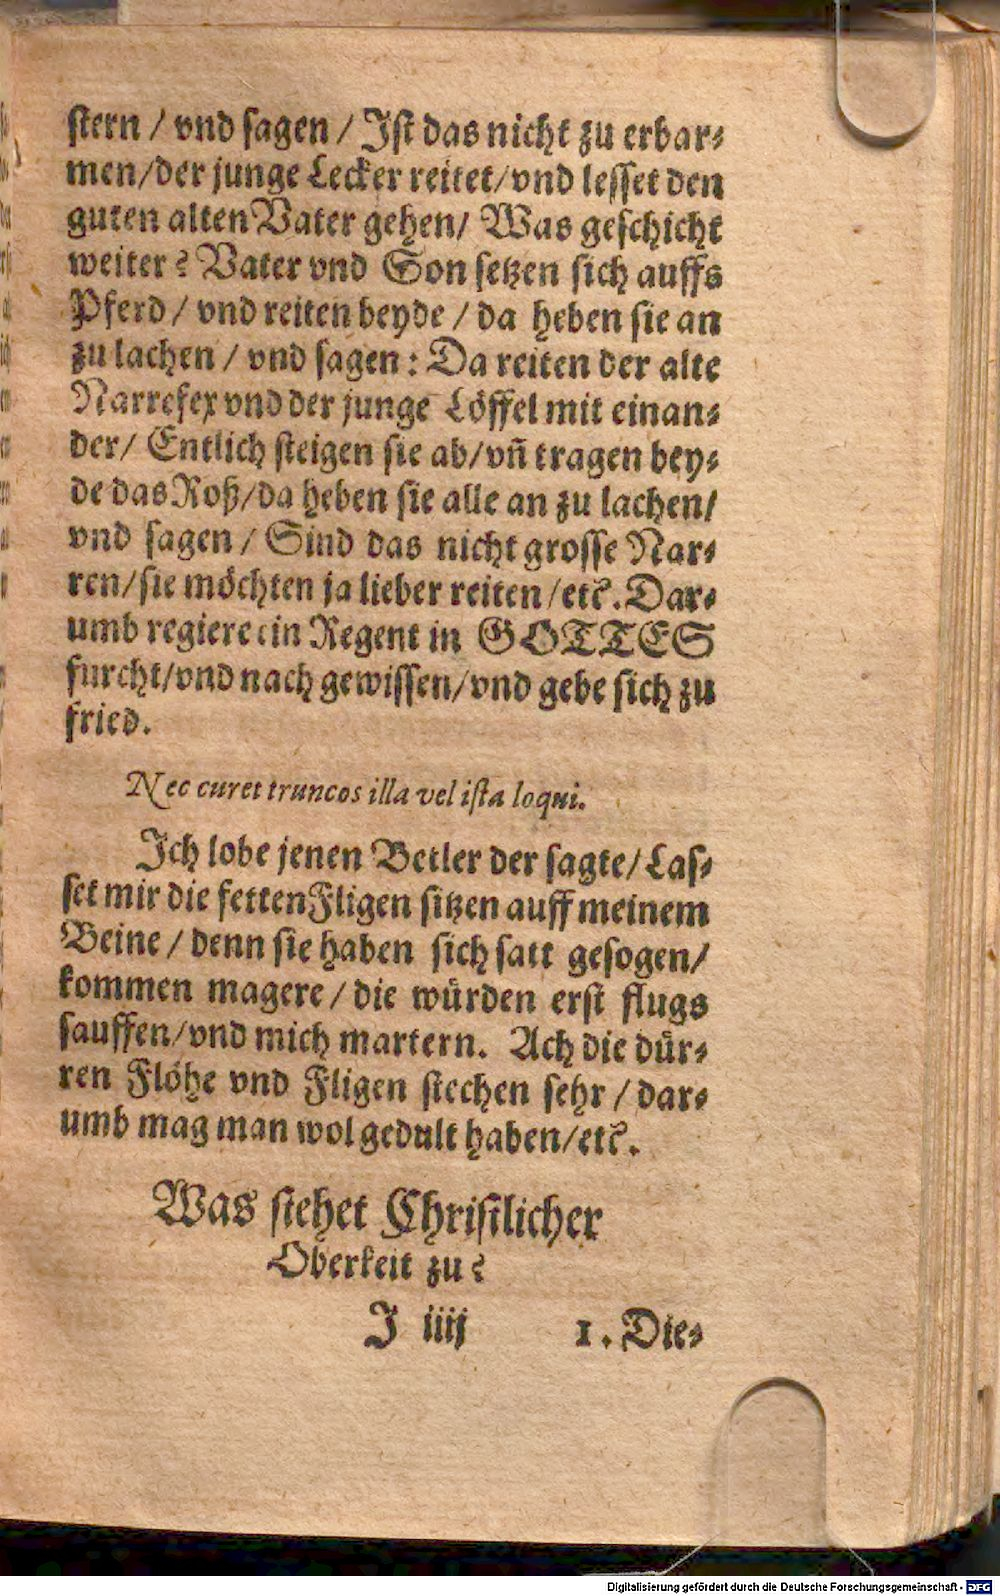 ſtern / vnd ſagen / Iſt das nicht zu erbar⸗
men/der junge Lecker reitet/vnd leſſet den
guten alten Vater gehen/ Was geſchicht
weiter? Vater vnd Son ſetzen ſich auffs
Pferd / vnd reiten beyde / da heben ſie an
zu lachen / vnd ſagen : Da reiten der alte
Narrefex vnd der junge Löffel mit einan⸗
der/ Entlich ſteigen ſie ab/vñ tragen bey⸗
de das Roß/da heben ſie alle an zu lachen/
vnd ſagen / Sind das nicht groſſe Nar⸗
ren/ſie möchten ja lieber reiten /etc. Dar⸗
umb regiere ein Regent in GOTTES
furcht/vnd nach gewiſſen/vnd gebe ſich zu
fried.
Nec curet truncos illa vel iſta loqui.
Ich lobe jenen Betler der ſagte/ Laſ⸗
ſet mir die fetten Fligen ſitzen auff meinem
Beine / denn ſie haben ſich ſatt geſogen/
kommen magere / die würden erſt flugs
ſauffen/vnd mich martern. Ach die dür⸗
ren Flöhe vnd Fligen ſtechen ſehr / dar⸗
umb mag man wol gedult haben/etc.
Was ſtehet Chriſtlicher
Oberkeit zu?
I iiij 1. Die⸗
Digitalisierung gefördert durch die Deutsche Forschungsgemeinschaft - DFG